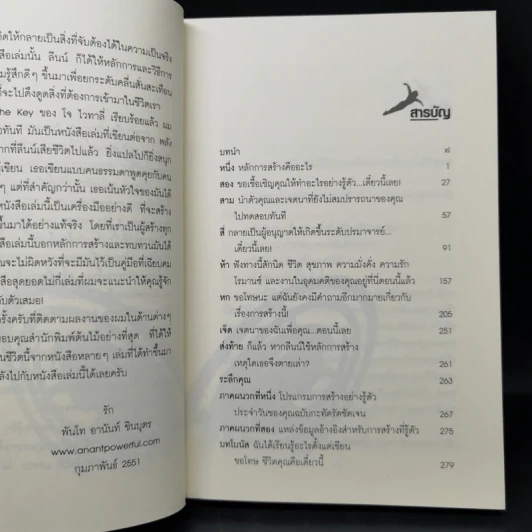 คิดให้กลายเป็นสิ่งที่จับต้องได้ในความเป็นจริง
สือเล่มนั้น ลีนน์ ก็ได้ให้หลักการและวิธีการ
มรู้สึกดีๆ ขึ้นมาเพื่อยกระดับคลื่นสั่นสะเทือน
ที่จะไปดึงดูดสิ่งที่ต้องการเข้ามาในชีวิตเรา
he Key ของ โจ ไวทาลี่ เรียบร้อยแล้ว ผม
ทันที มันเป็นหนังสือเล่มที่เขียนต่อจาก พลัง
ากที่ลีนน์เสียชีวิตไปแล้ว ยิ่งแปลไปก็ยิ่งสนุก
ผู้เขียน เธอเขียนแบบคนธรรมดาพูดคุยกับคน
ๆ แต่ที่สำคัญกว่านั้น เธอเน้นหัวใจของมันได้
นังสือเล่มนี้เป็นเครื่องมืออย่างดี ที่จะสร้าง
ขึ้นมาได้อย่างแท้จริง โดยที่เราเป็นผู้สร้างทุก
ือเล่มนี้บอกหลักการสร้างและทบทวนมันได้
ณจะไม่ผิดหวังที่จะมีมันไว้เป็นคู่มือที่เฉียบคม
สือสุดยอดไม่กี่เล่มที่ผมจะแนะนำให้คุณรู้จัก
บตัวเสมอ!
รั้งครับที่ติดตามผลงานของผมในด้านต่างๆ
อบคุณสำนักพิมพ์ต้นไม้อย่างที่สุด ที่ได้ให้
นชีวิตนี้จากหนังสือหลายๆ เล่มที่ได้ทำขึ้นมา
ลังไปกับหนังสือเล่มนี้ได้เลยครับ
รัก
พันโท อานันท์ ชินบุตร
www.anantpowerful.com
กุมภาพันธ์ 2551
สารบัญ
บทนำ xi
หนึ่ง หลักการสร้างคืออะไร 1
สอง ขอเชื้อเชิญคุณให้ทำอะไรอย่างรู้ตัว...เดี๋ยวนี้เลย! 27
สาม นำตัวคุณและเจตนาที่ยังไม่สมปรารถนาของคุณ
ไปทดสอบทันที 57
สี่ กลายเป็นผู้อนุญาตให้เกิดขึ้นระดับปรมาจารย์...
เดี๋ยวนี้เลย! 91
ห้า ฟังทางนี้สักนิด ชีวิต สุขภาพ ความมั่งคั่ง ความรัก
โรมานซ์ และงานในอุดมคติของคุณอยู่ที่นี่ตอนนี้แล้ว 157
หก ขอโทษนะ แต่ฉันยังคงมีคำถามอีกมากมายเกี่ยวกับ
เรื่องการสร้างนี้! 205
เจ็ด เจตนาของฉันเพื่อคุณ...ตอนนี้เลย 251
ส่งท้าย ก็แล้ว หากลีนน์ใช้หลักการสร้าง
เหตุใดเธอจึงตายเล่า? 261
ระลึกคุณ 263
ภาคผนวกที่หนึ่ง โปรแกรมการสร้างอย่างรู้ตัว
ประจำวันของคุณฉบับกะทัดรัดชัดเจน 267
ภาคผนวกที่สอง แหล่งข้อมูลอ้างอิงสำหรับการสร้างที่รู้ตัว 275
บทโบนัส ฉันได้เรียนรู้อะไรตั้งแต่เขียน
ขอโทษ ชีวิตคุณคือเดี๋ยวนี้ 279